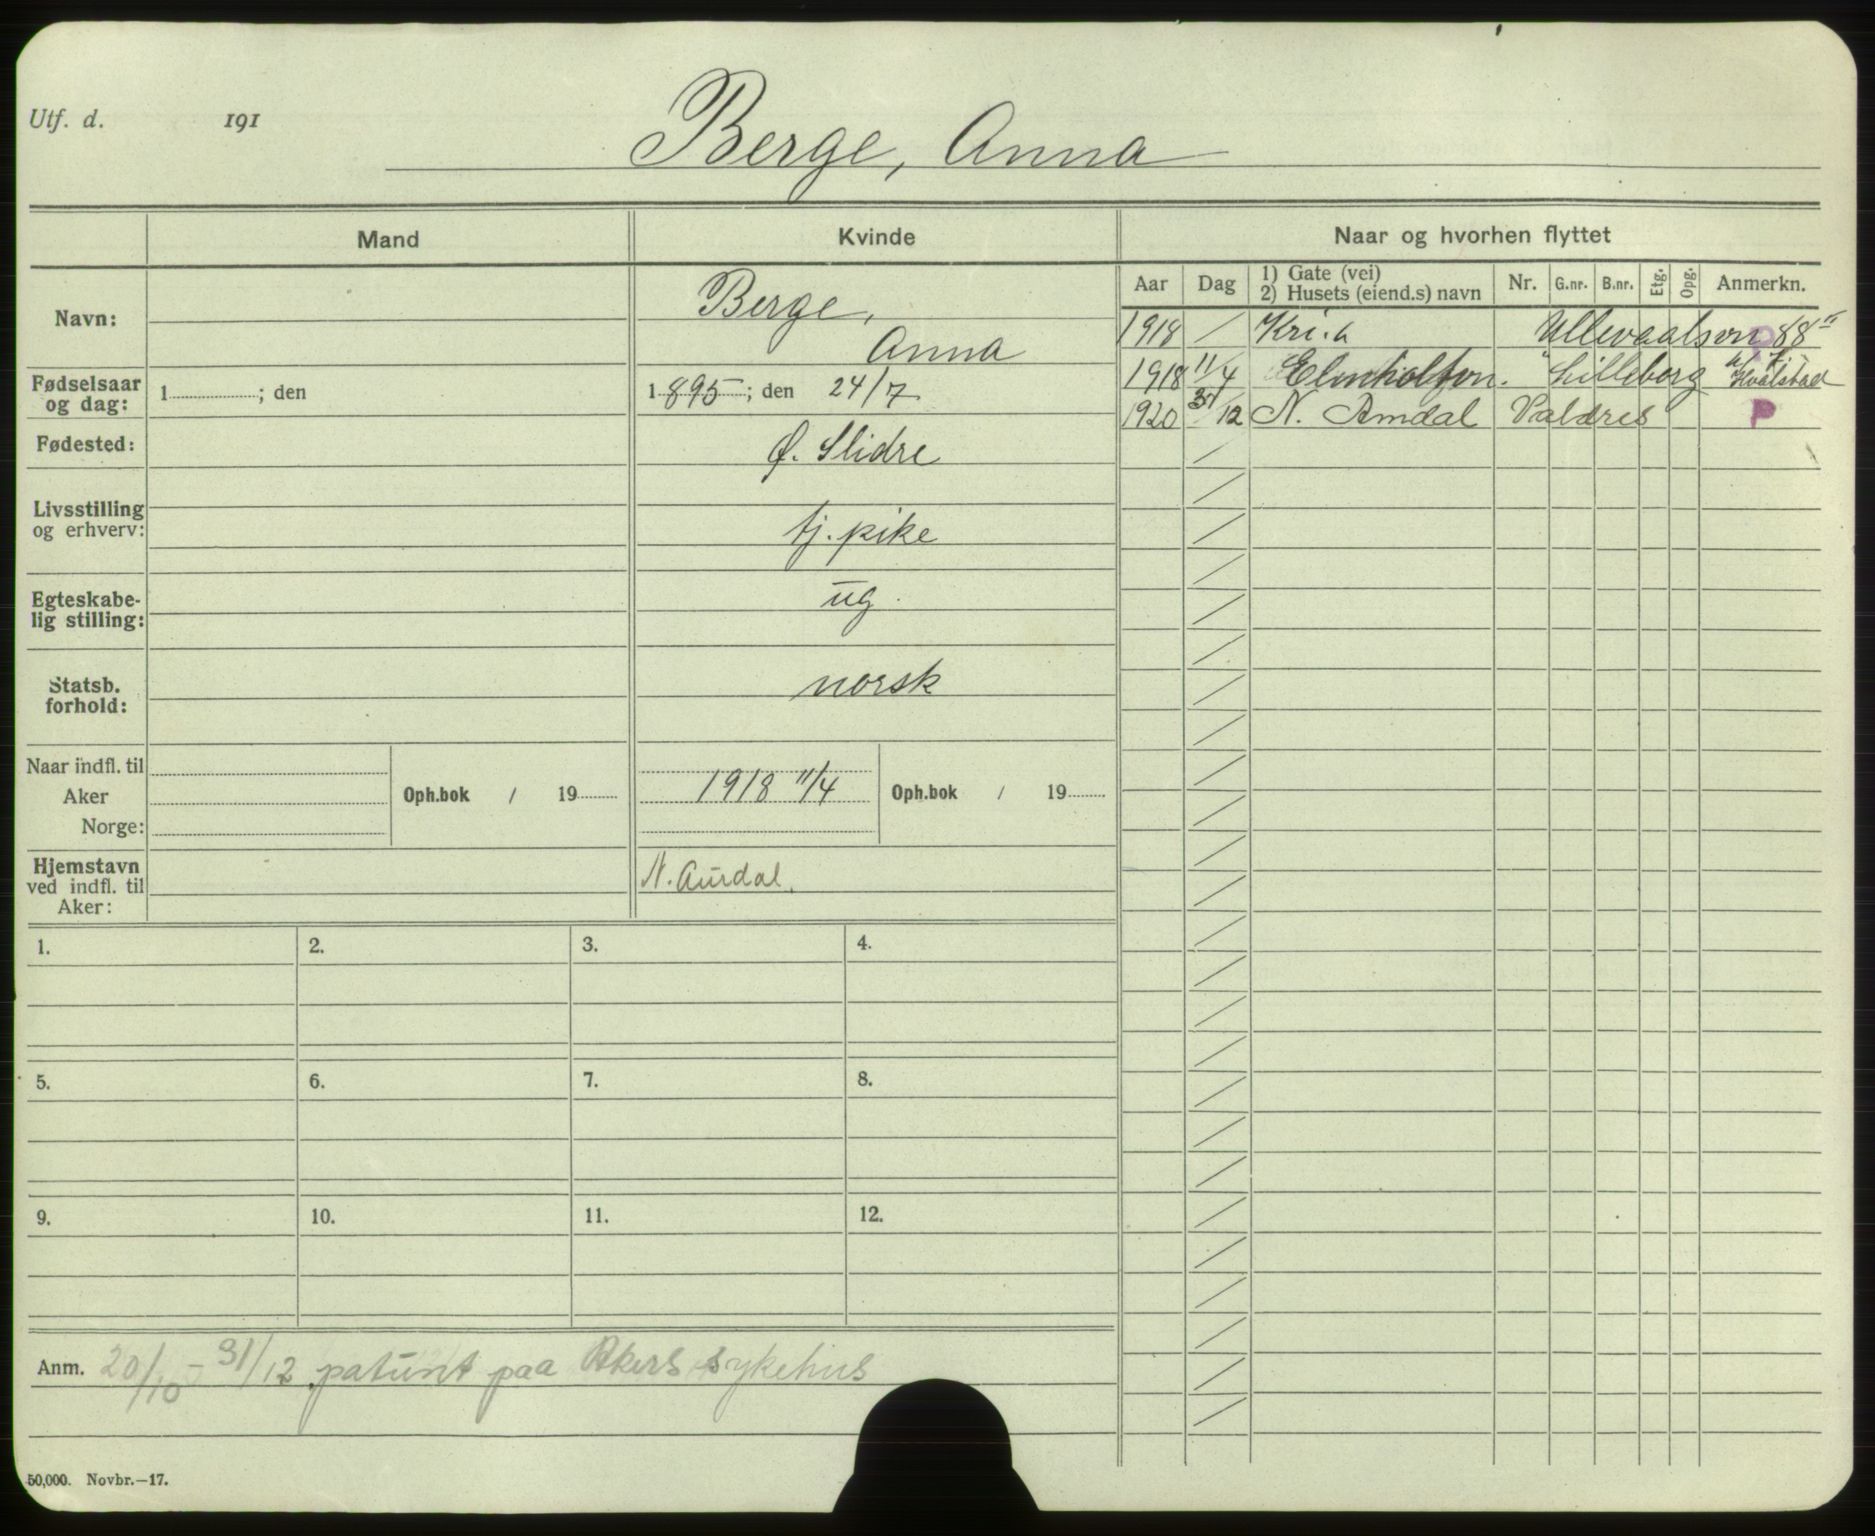 Utf. d. 191
Berge, Anna
Mand
Kvinde
Naar og hvorhen flyttet
Aar Dag 1) Gate (vei) 2) Husets (eiend.s) navn Nr. G.nr. B.nr. Etg. Opg. Anmerkn.
Navn:
Berge,
Anna
Fødselsaar og dag:
1 ; den
1895 ; den 24/7
Fødested:
Ø. Slidre
Livsstilling og erhverv:
tj. pike
Egteskabe-
lig stilling:
ug.
Statsb.
forhold:
norsk
Naar indfl. til
Aker
Norge:
Oph.bok / 19
1918 11/4
Oph.bok / 19
Hjemstavn
ved indfl. til
Aker:
N. Aurdal.
1918 / Kri.a Ullevaalsvn 88 II
1918 11/4 Lilleborg Hvalstad
1920 31/12 N. Aurdal Valdres P
1. 2. 3. 4.
5. 6. 7. 8.
9. 10. 11. 12.
Anm. 20/10 - 31/12 patient paa Akers sykehus
50,000. Novbr.—17.